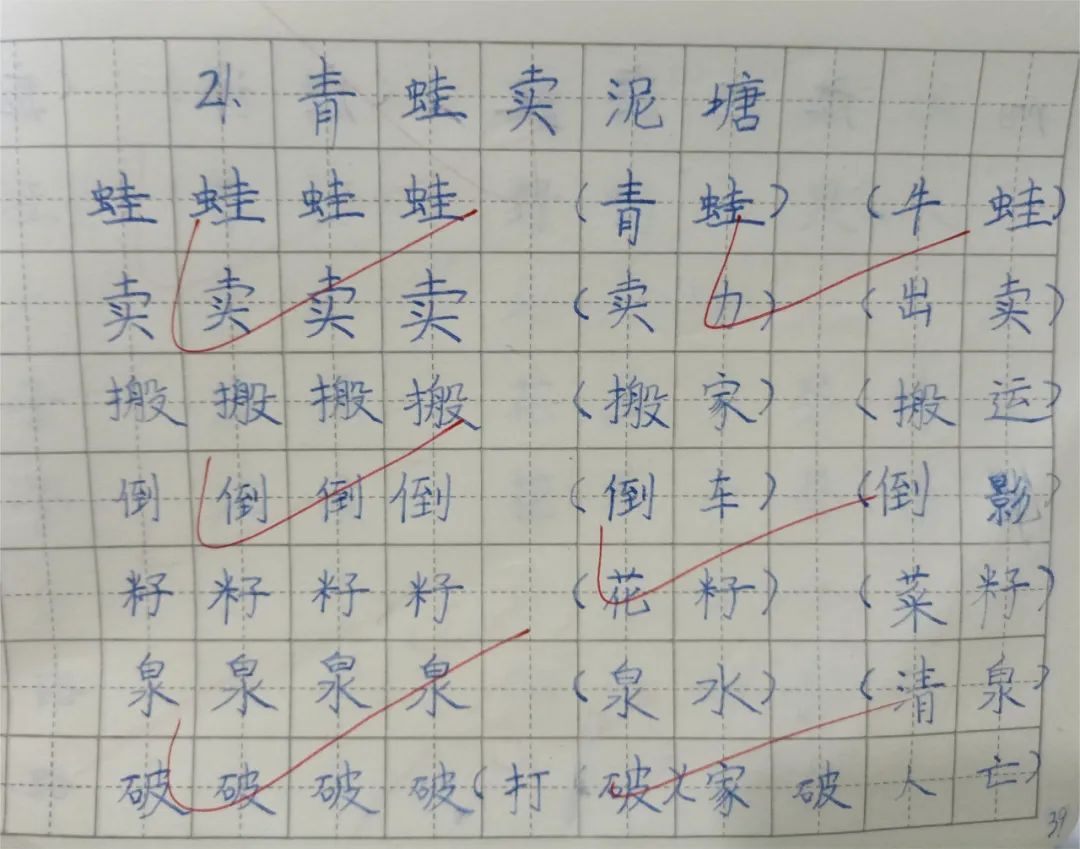 21、青蛙卖泥塘
蛙蛙蛙蛙(青蛙)(牛蛙)
卖卖卖卖(卖力)(出卖)
搬搬搬搬(搬家)(搬运)
倒倒倒倒(倒车)(倒影)
籽籽籽籽(花籽)(菜籽)
泉泉泉泉(泉水)(清泉)
破破破破(打破)(家破人亡)
39